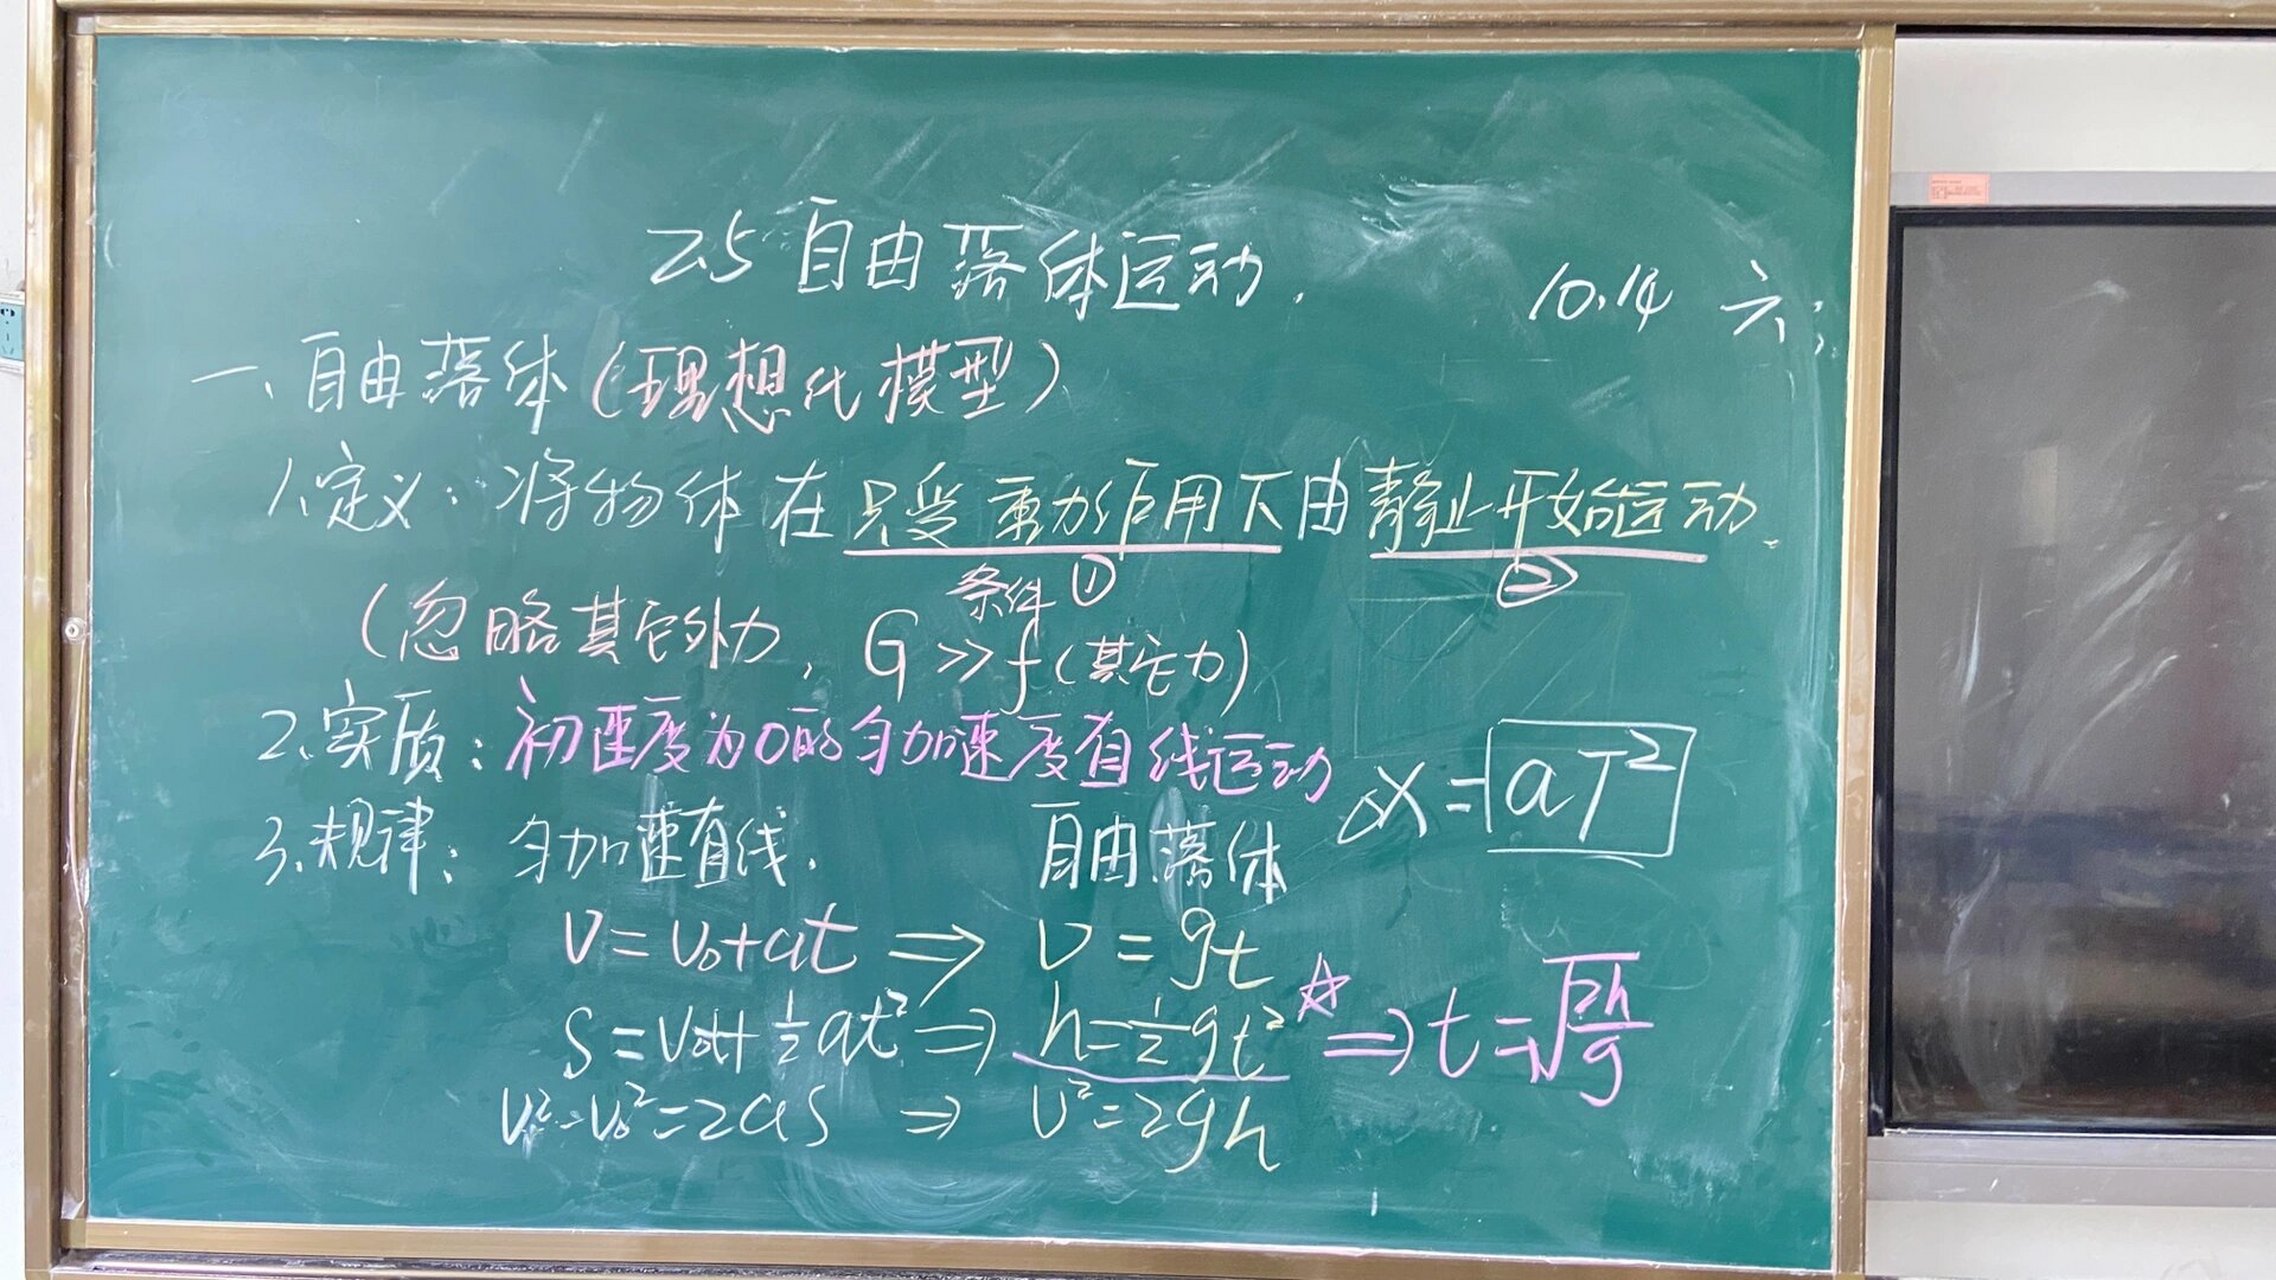 2.5 自由落体运动.
10.14 六
一、自由落体(理想化模型)
1.定义:将物体在只受重力作用下由静止开始运动。
条件① ②
(忽略其它外力, G≫f(其它力)
2.实质:初速度为0的匀加速度直线运动
Δx=aT²
3.规律:匀加速直线. 自由落体
V=V₀+at ⇒ V=gt
S=V₀t+½at² ⇒ h=½gt² ☆ ⇒ t=√(2h/g)
V²-V₀²=2aS ⇒ V²=2gh